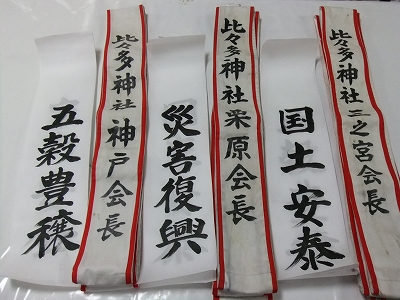 比々多神社三之宮会長
国土安泰
比々多神社栗原会長
災害復興
比々多神社神戸会長
五穀豊穣